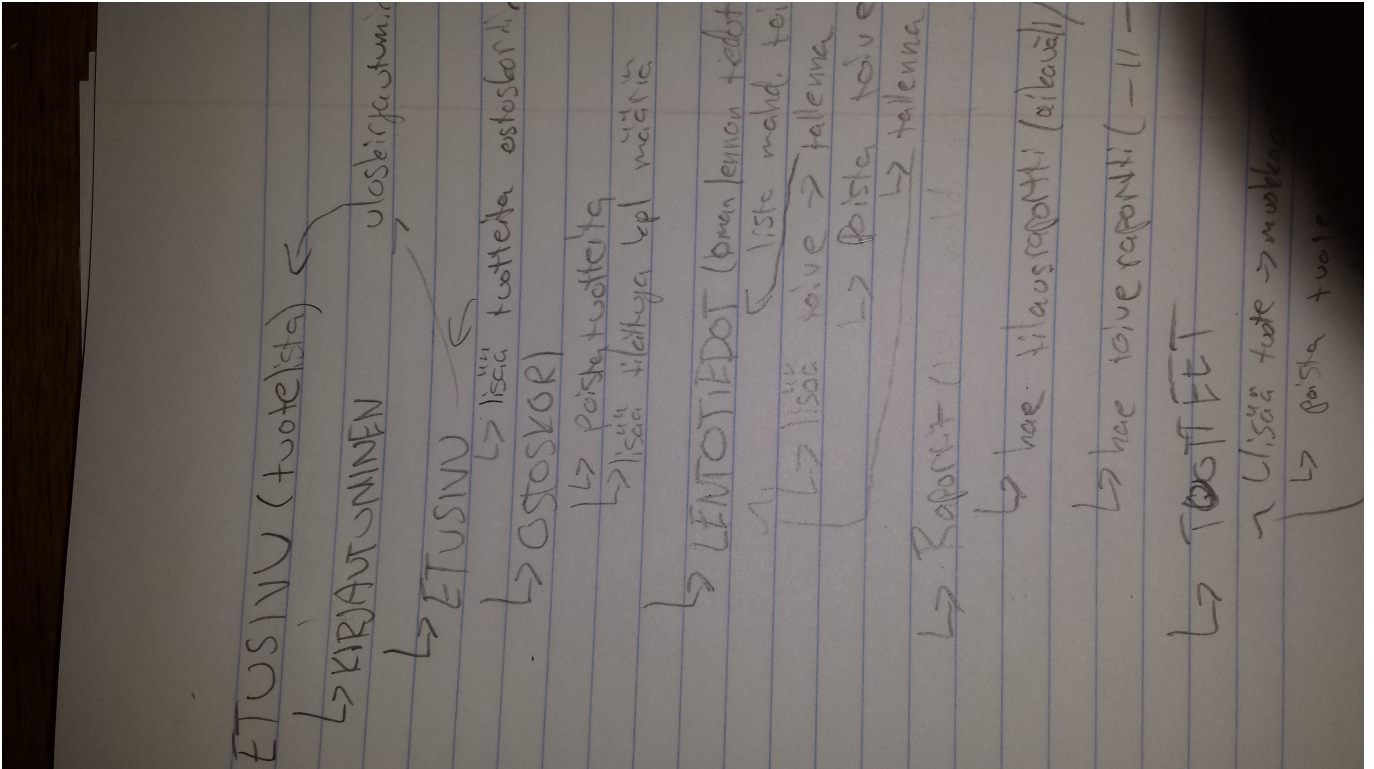 ETUSIVU (tuotelista)
↳ KIRJAUTUMINEN uloskirjautumin
↳ ETUSIVU
↳ lisää tuotteita ostoskorii
↳ OSTOSKORI
↳ poista tuotteita
↳ lisää tilattuja kpl määriä
↳ LENTOTIEDOT (oman lennon tiedot
lista mahd. toi
↳ lisää toive → tallenna
↳ poista toive
↳ tallenna
↳ Raportit (
↳ hae tilausraportti (aikaväli)
↳ hae toiveraportti (-11-
↳ TUOTTEET
lisää tuote → muokkaa
↳ poista tuote